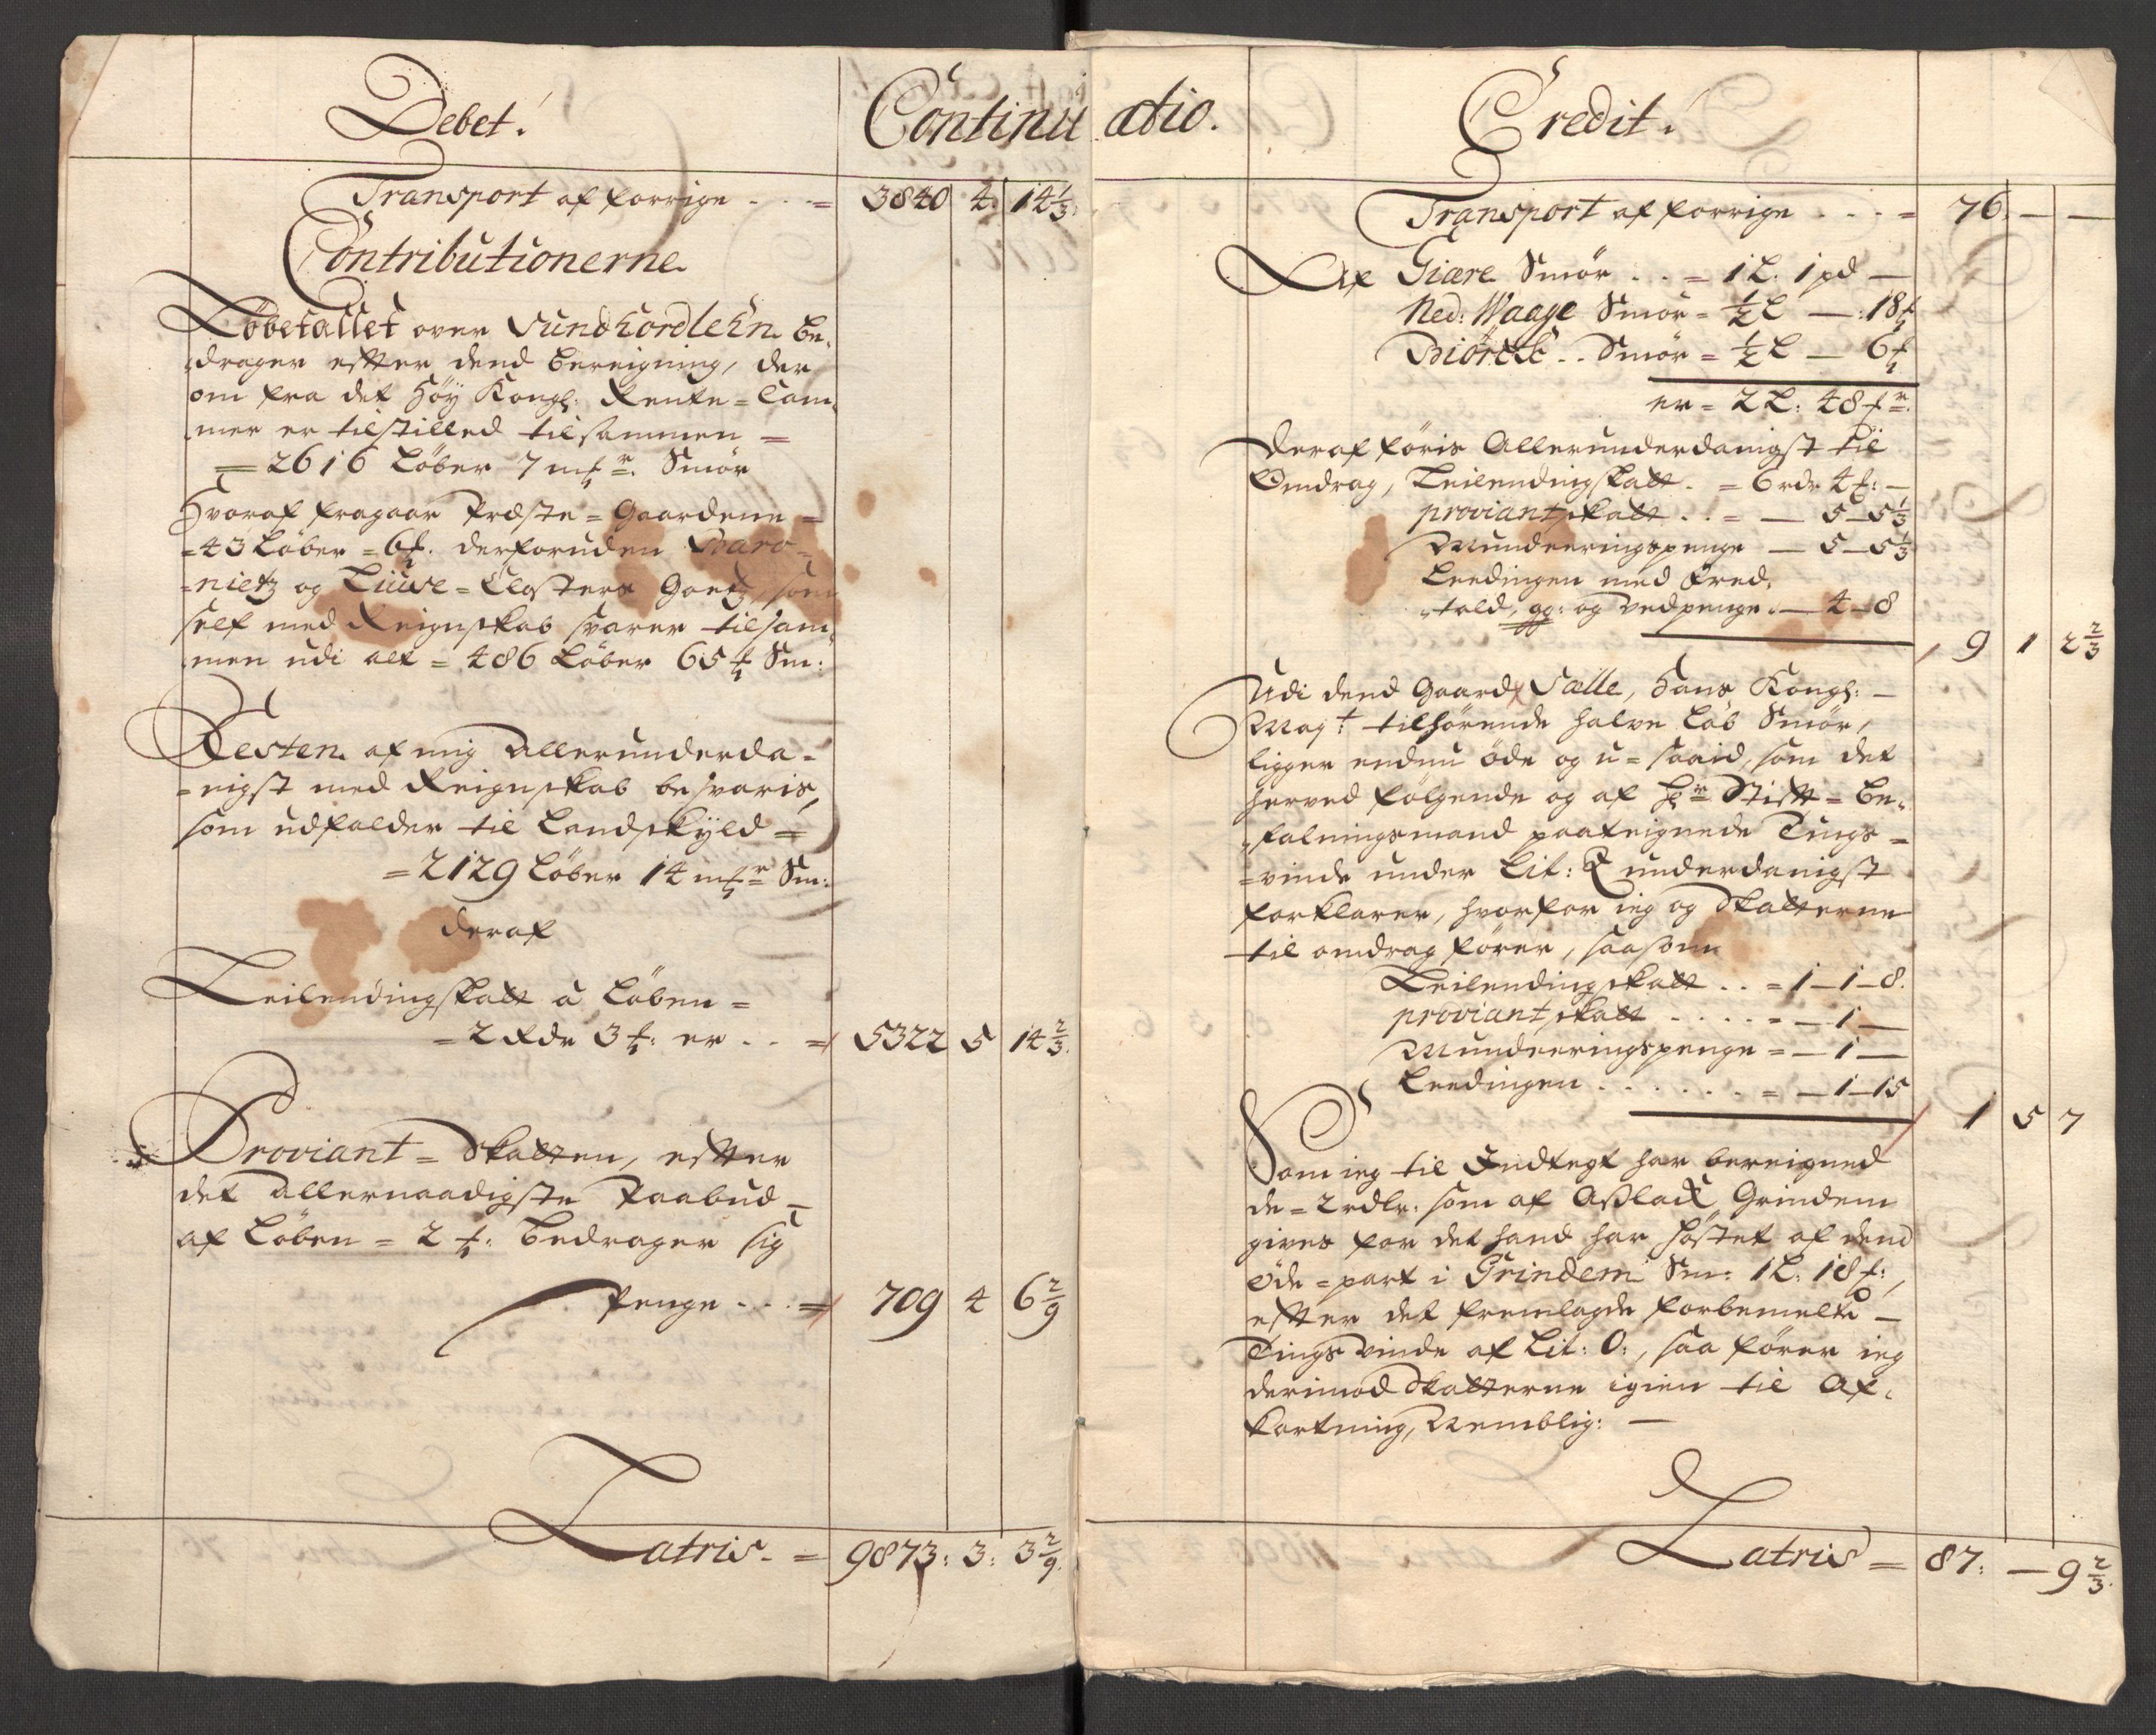 Debet.
Continu
Transport af forrige . . . = 3840 4. 14 1/3.
Contributionerne.
Løbetallet over Sundhordlehn be,
drager efter dend bereigning, der
om fra det Høy Kongl: Rente-Cam,
mer er tilstilled tilsammen =
= 2616 Løber 7 mkr. Smør
Hvoraf fragaar Præste-Gaardene =
= 43 Løber = 6 . derforuden Baro-
-nietz og Liuse-Closters Goetz, som
self med Reignskab svarer tilsam,
men udi alt = 486 Løber 65 Sm:
Resten af mig allerunderda-
-nigst med Reignskab besvaris,
som udfalder til Landskyld =
= 2129 Løber 14 mkr Sm:
deraf
Leilendingskatt a Løben =
= 2 Rdr 3 : er . . = 5322 5 14 2/3.
Proviant-Skatten, efter
det allernaadigste Paabud =
af Løben = 2 : bedrager sig
Penge . . . = 709 4 6 2/9
Latris. = 9873: 3: 3 2/9.
atio.
Credit.
Transport af forrige . . . . = 76. — —
Af Giære Smør . . = 1 L. 1 pd —
Ned: Waage Smør = 1/2 L — 18
Biørck . . Smør = 1/2 L — 6
er = 2 L: 48
deraf føris Allerunderdanigst til
Omdrag, Leilendingskatt. = 6 rdr 4 : —
proviantskatt . . = — 5 — 5 1/3
Munderingspenge — 5 — 5 1/3
Leedingen med Fred,
told, og vedpenge. — 4 — 8
9 1 2 2/3
Udi dend Gaard Sælle, Hans Kongl: —
Mayt: tilhørende halve Løb Smør,
ligger endnu øde og u-saaid, som det
herved følgende og af Hr Stift-be,
falningsmand paateignede Tings-
-vinde under Lit: underdanigst
forklarer, hvorfor ieg og Skatterne
til omdrag fører, saasom
Leilendingskatt . . = 1 — 1 — 8.
proviantskatt . . . . . = — 1 —
Munderingspenge = — 1 —
Leedingen . . . . . . . = — 1 — 15
1 5 7
Som ieg til Indtegt har bereigned
de = 2 rdlr: som af Aslack Grindem
gives for det hand har høstet af dend
øde-part i Grindem Sm: 1 L. 18 :,
efter det fremlagde forbemelte —
Tingsvinde af Lit: O:, saa fører ieg
derimod Skatterne igien til Af,
kortning, Nemblig: —
Latris = 87: — 9 2/3.